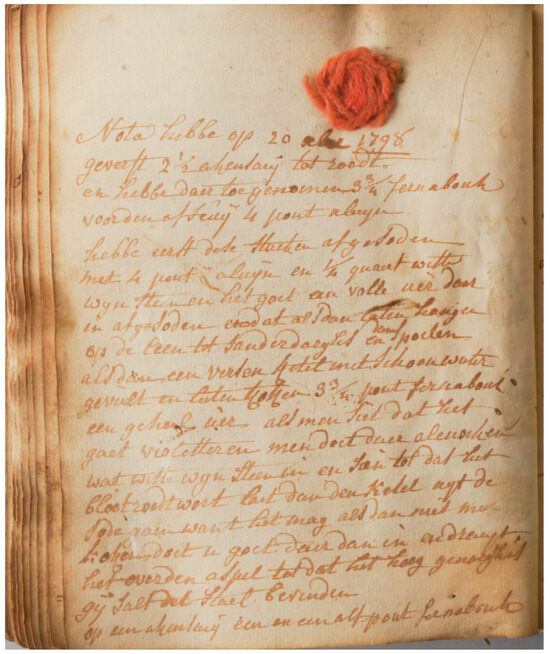 Nota hebbe op 20 1798
geverft 2 1/2 akensaij tot roodt
en hebbe daer toe genomen 3 3/4 fernabouk
voorden afsuij 4 pont aluijn
hebbe eerst dese stucken afgesoden
met 4 pont aluijn en 1/4 quaert witte
wyn steen en het goet een volle uer daer
in afgesoden en dat als dan laten hangen
op de Leen tot sanderdaeghs en dan spoelen
als dan een versen ketel met schoon water
gevult en laten koken 3 3/4 pont fernabouk
een geheel uer als men siet dat het
gaet violetteren men doet daer alenskens
wat witte wyn steen in en dan tot dat het
bloetroodt wort laet dan den ketel uyt de
sode gaen want het mag als dan niet meer
koken doet u goet daer dan in en dreyt
het over den aspel tot dat het hoog genoegh is
gij salt het stael bevinden
op een akensaij een en een alf pont fernabouk